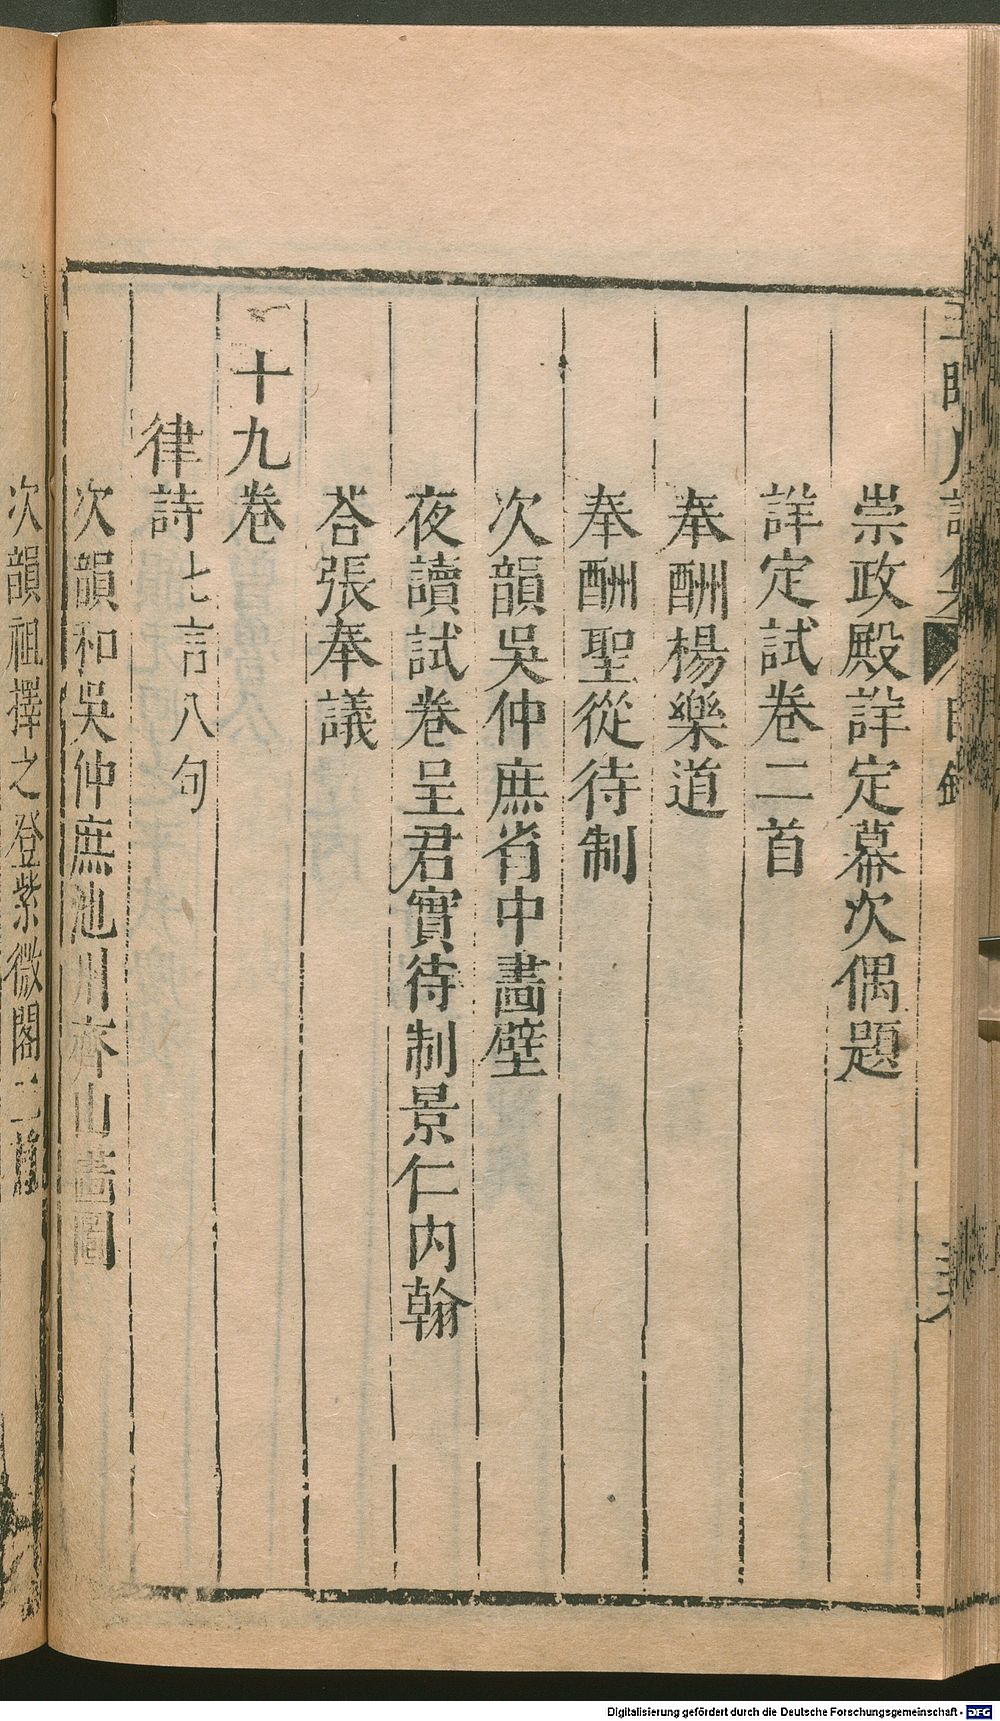 崇政殿詳定幕次偶題
詳定試卷二首
奉酬楊樂道
奉酬聖從待制
次韻吳仲庶省中畵壁
夜讀試卷呈君實待制景仁內翰
荅張奉議
十九卷
律詩七言八句
次韻和吳仲庶池州齊山畵圖
次韻祖擇之登紫微閣二首
Digitalisierung gefördert durch die Deutsche Forschungsgemeinschaft - DFG